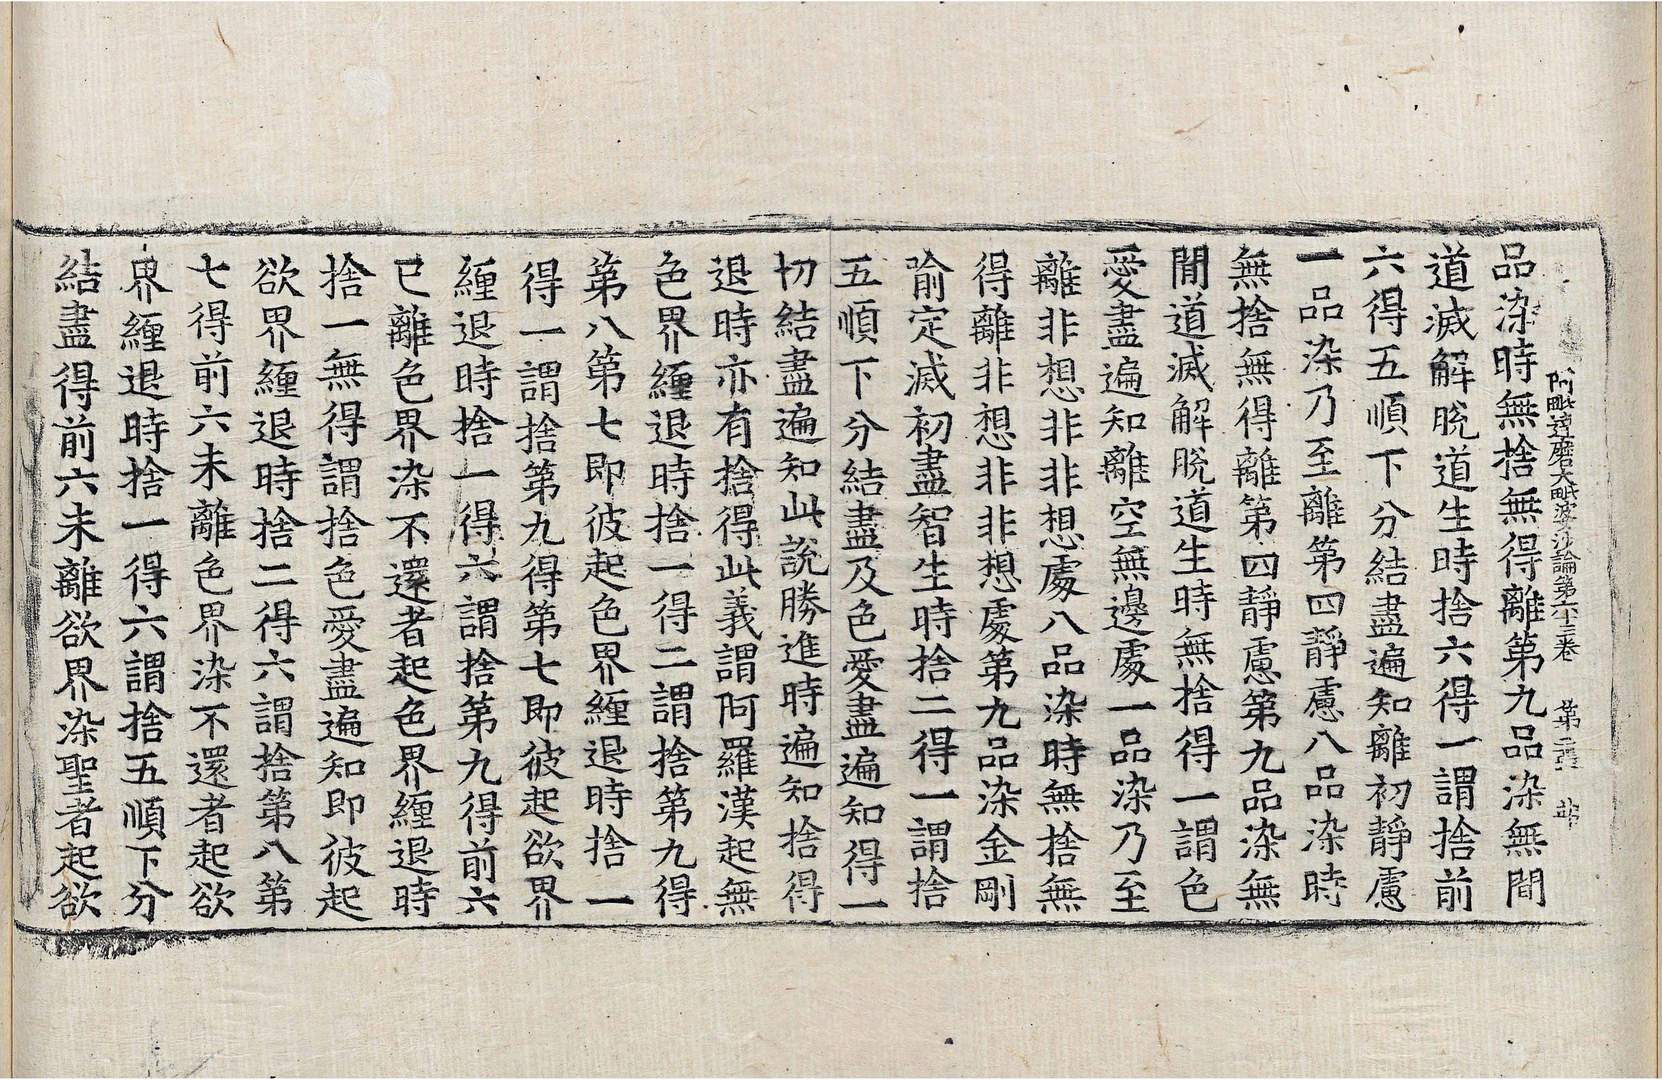 阿毗達磨大毗婆沙論第六十三卷　第二十二張　
品染時無捨無得離第九品染無間
道滅解脫道生時捨六得一謂捨前
六得五順下分結盡遍知離初靜慮
一品染乃至離第四靜慮八品染時
無捨無得離第四靜慮第九品染無
間道滅解脫道生時無捨得一謂色
愛盡遍知離空無邊處一品染乃至
離非想非非想處八品染時無捨無
得離非想非非想處第九品染金剛
喻定滅初盡智生時捨二得一謂捨
五順下分結盡及色愛盡遍知得一
切結盡遍知此說勝進時遍知捨得
退時亦有捨得此義謂阿羅漢起無
色界纏退時捨一得二謂捨第九得
第八第七即彼起色界纏退時捨一
得一謂捨第九得第七即彼起欲界
纏退時捨一得六謂捨第九得前六
已離色界染不還者起色界纏退時
捨一無得謂捨色愛盡遍知即彼起
欲界纏退時捨二得六謂捨第八第
七得前六未離色界染不還者起欲
界纏退時捨一得六謂捨五順下分
結盡得前六未離欲界染聖者起欲